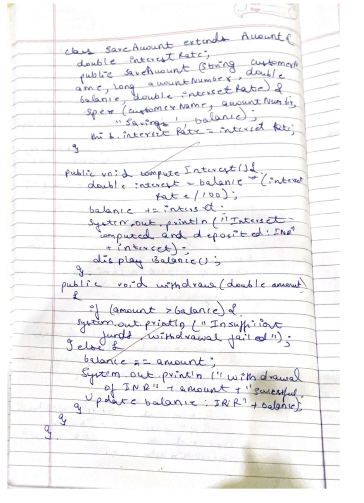 class SaveAuount extends Auount{
double interest Rate;
public saveAuount (String customerN
ame, Long auountNumber, double
balance, double interestRate) {
Super (customerName, auountNumber,
"Savings", balance);
this.interset Rate = interset Rate;
}
public void compute Interest() {
double interest = balance * (interest
Rate /100);
balance += interest;
System.out.println ("Interset
computed and deposited: INR"
+ interset);
display Balance();
}
public void withdraws (double amount)
{
if (amount > balance) {
System.out.println ("Insufficient
funds withdrawal failed");
} else {
balance -= amount;
System.out.println ("withdrawal
of INR" + amount + "sucessful.
Update balance: INR" + balance);
}
}
}